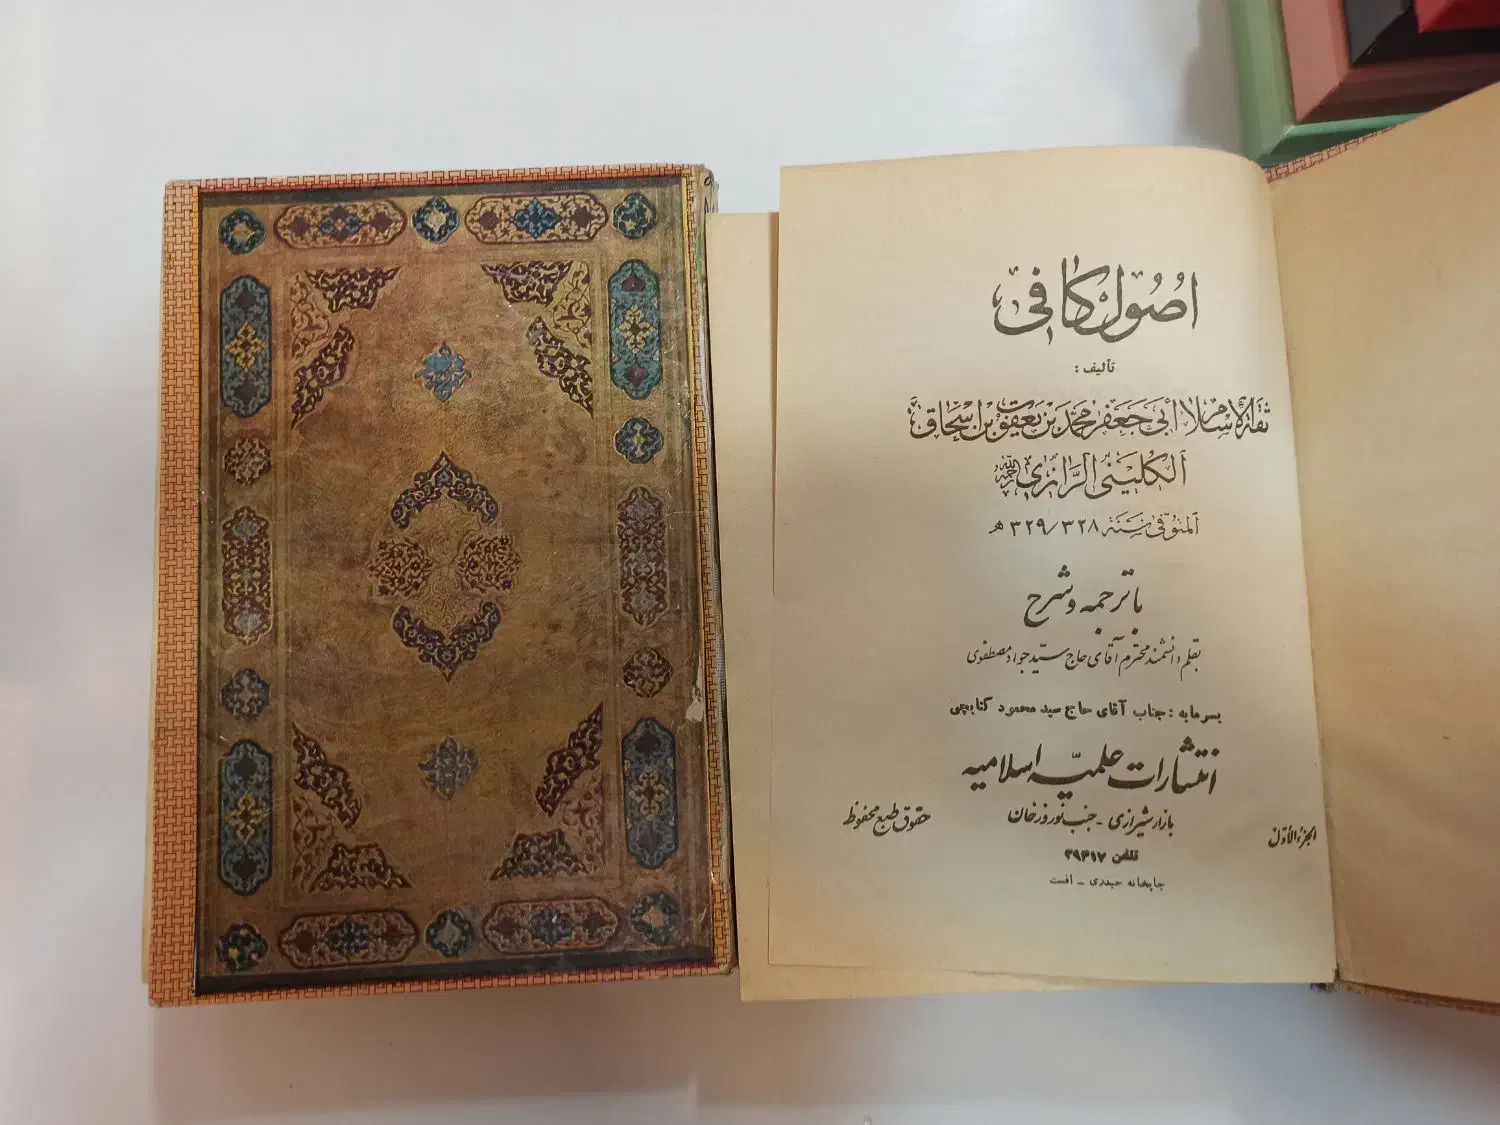 اصول کافی
تألیف :
ثقة الاسلام أبی جعفر محمد بن یعقوب بن اسحاق
الکلینی الرازی رحمه الله
المتوفی سنة ۳۲۸/۳۲۹ ه
با ترجمه و شرح
بقلم دانشمند محترم آقای حاج سید جواد مصطفوی
بسرمایه : جناب آقای حاج سید محمود کتابچی
انتشارات علمیه اسلامیه
بازار شیرازی - جنب نوروزخان
حقوق طبع محفوظ
الجزء الاول
تلفن ۲۹۴۱۷
چاپخانه حیدری - افست